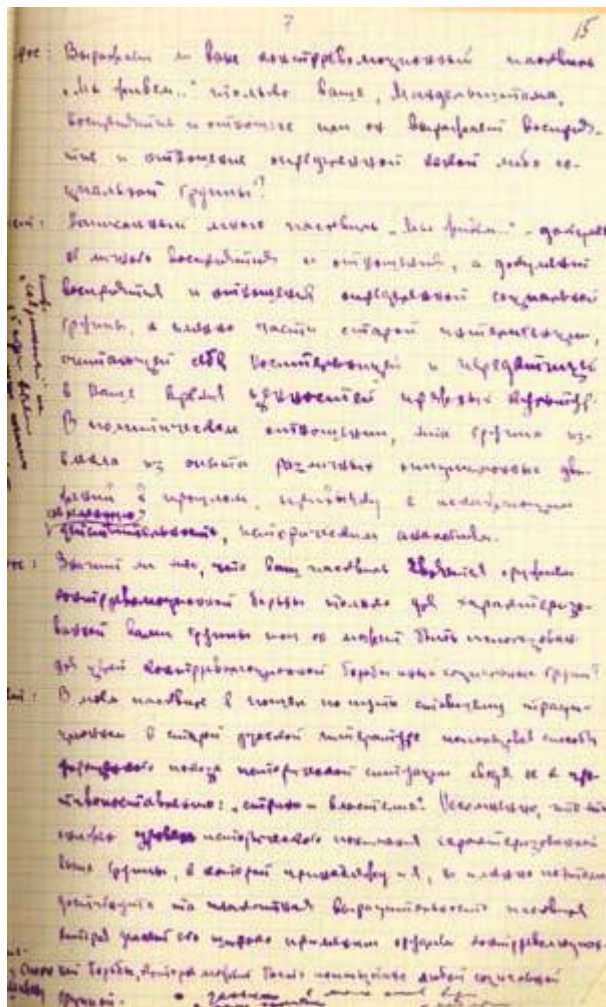 7
15
Выражает ли ваш контрреволюционный пасквиль
„Мы живем..“ только ваше, Мандельштама,
восприятие и отношение или он выражает восприя-
тие и отношение определенной какой либо со-
циальной группы?
Написанный мною пасквиль „Мы живем..“ – документ
не личного восприятия и отношения, а документ
восприятия и отношения определенной социальной
группы, а именно части старой интеллигенции,
считающей себя носительницей и передатчицей
в наше время ценностей прежних культур.
В политическом отношении, эта группа из-
влекла из опыта различных оппозиционных дви-
жений в прошлом, привычку к искажающим
современную
действительность, историческим аналогиям.
Значит ли это, что ваш пасквиль является оружием
контрреволюционной борьбы только для характеризо-
ванной вами группы или он может быть использован
для целей контрреволюционной борьбы иных социальных групп?
В моем пасквиле я пошел по пути ставшему традиц-
ионным в старой русской литературе использовав способы
упрощенного показа исторической ситуации сведя ее к про-
тивопоставлению: „страна и властелин“. Несомненно, что этим
снижен уровень исторического понимания характеризованной
выше группы, к которой принадлежу и я, но именно поэтому
достигнута та плакатная выразительность пасквиля
которая делает его широко применимым орудием контрреволюцион-
ной борьбы, которое может быть использовано любой социальной
группой.